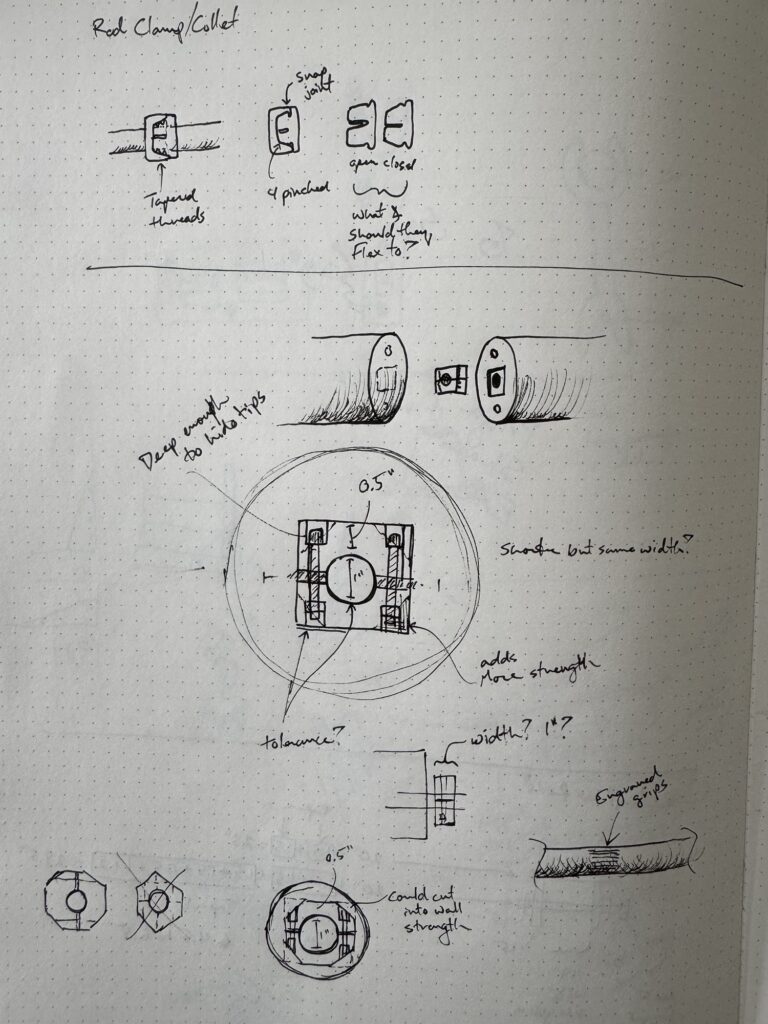 Rod Clamp/Collet
snap
joint
Tapered
threads
4 pinched
open closed
what
should they
flex to?
Deep enough
to hide tips
0.5"
1"
Shorter but same width?
adds
more strength
tolerance?
width? 1"?
Engraved
grips
0.5"
1"
Could cut
into wall
strength